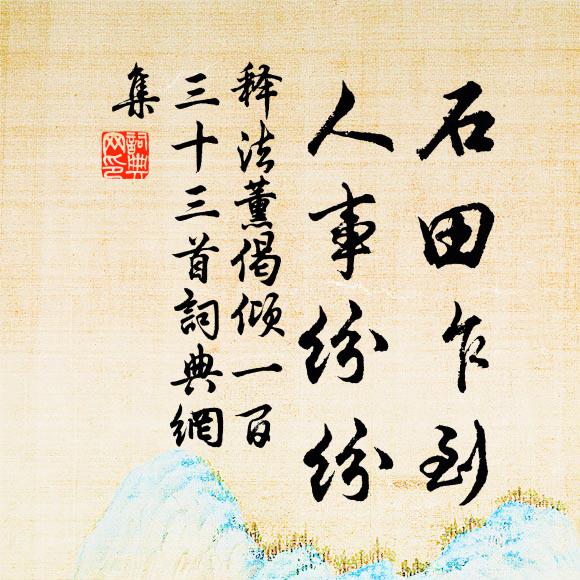 石田乍到
人事纷纷
释法薰偈倾一百
三十三首詞典網
集
詞典
网印